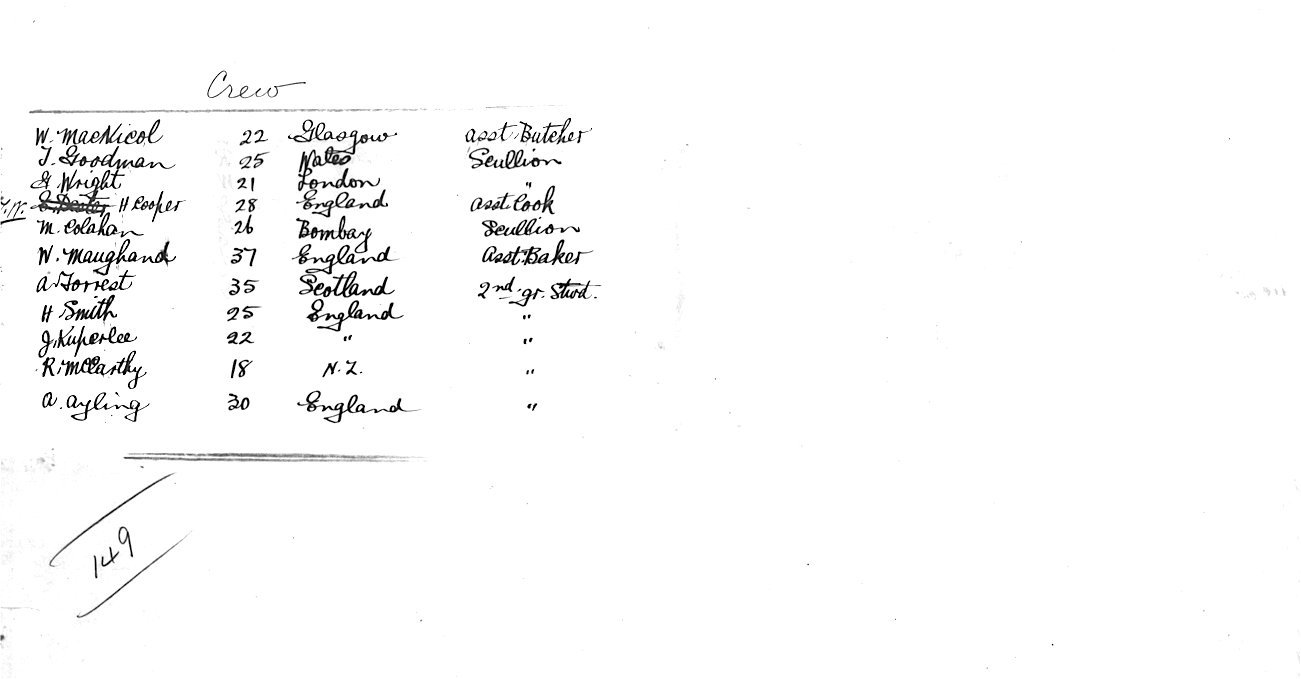 Crew
W. MacNicol 22 Glasgow asst Butcher
T. Goodman 25 Wales Scullion
G Wright 21 London "
H Cooper 28 England asst Cook
M. Colahan 26 Bombay Scullion
W. Maughand 37 England Asst Baker
A Forrest 35 Scotland 2nd gr. Stwd.
H Smith 25 England "
J. Kuperlee 22 " "
R. McCarthy 18 N.Z. "
A. Ayling 30 England "
149